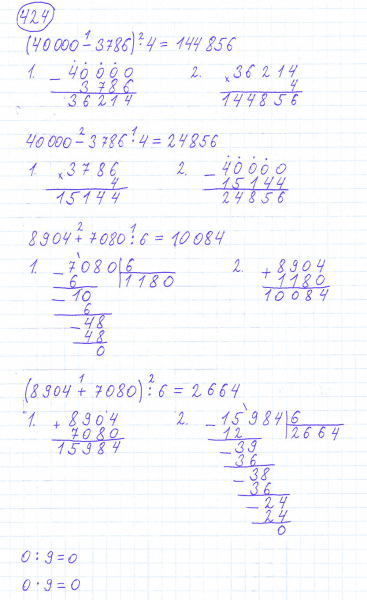 424
1 2
(40000 - 3786) · 4 = 144856
1. - 40000
3786
36214
2. × 36214
4
144856
2 1
40000 - 3786 · 4 = 24856
1. × 3786
4
15144
2. - 40000
15144
24856
2 1
8904 + 7080 : 6 = 10084
1. - 7080 | 6
6 | 1180
- 10
6
- 48
48
0
2. + 8904
1180
10084
1 2
(8904 + 7080) : 6 = 2664
1. + 8904
7080
15984
2. - 15984 | 6
12 | 2664
- 39
36
- 38
36
- 24
24
0
0 : 9 = 0
0 · 9 = 0